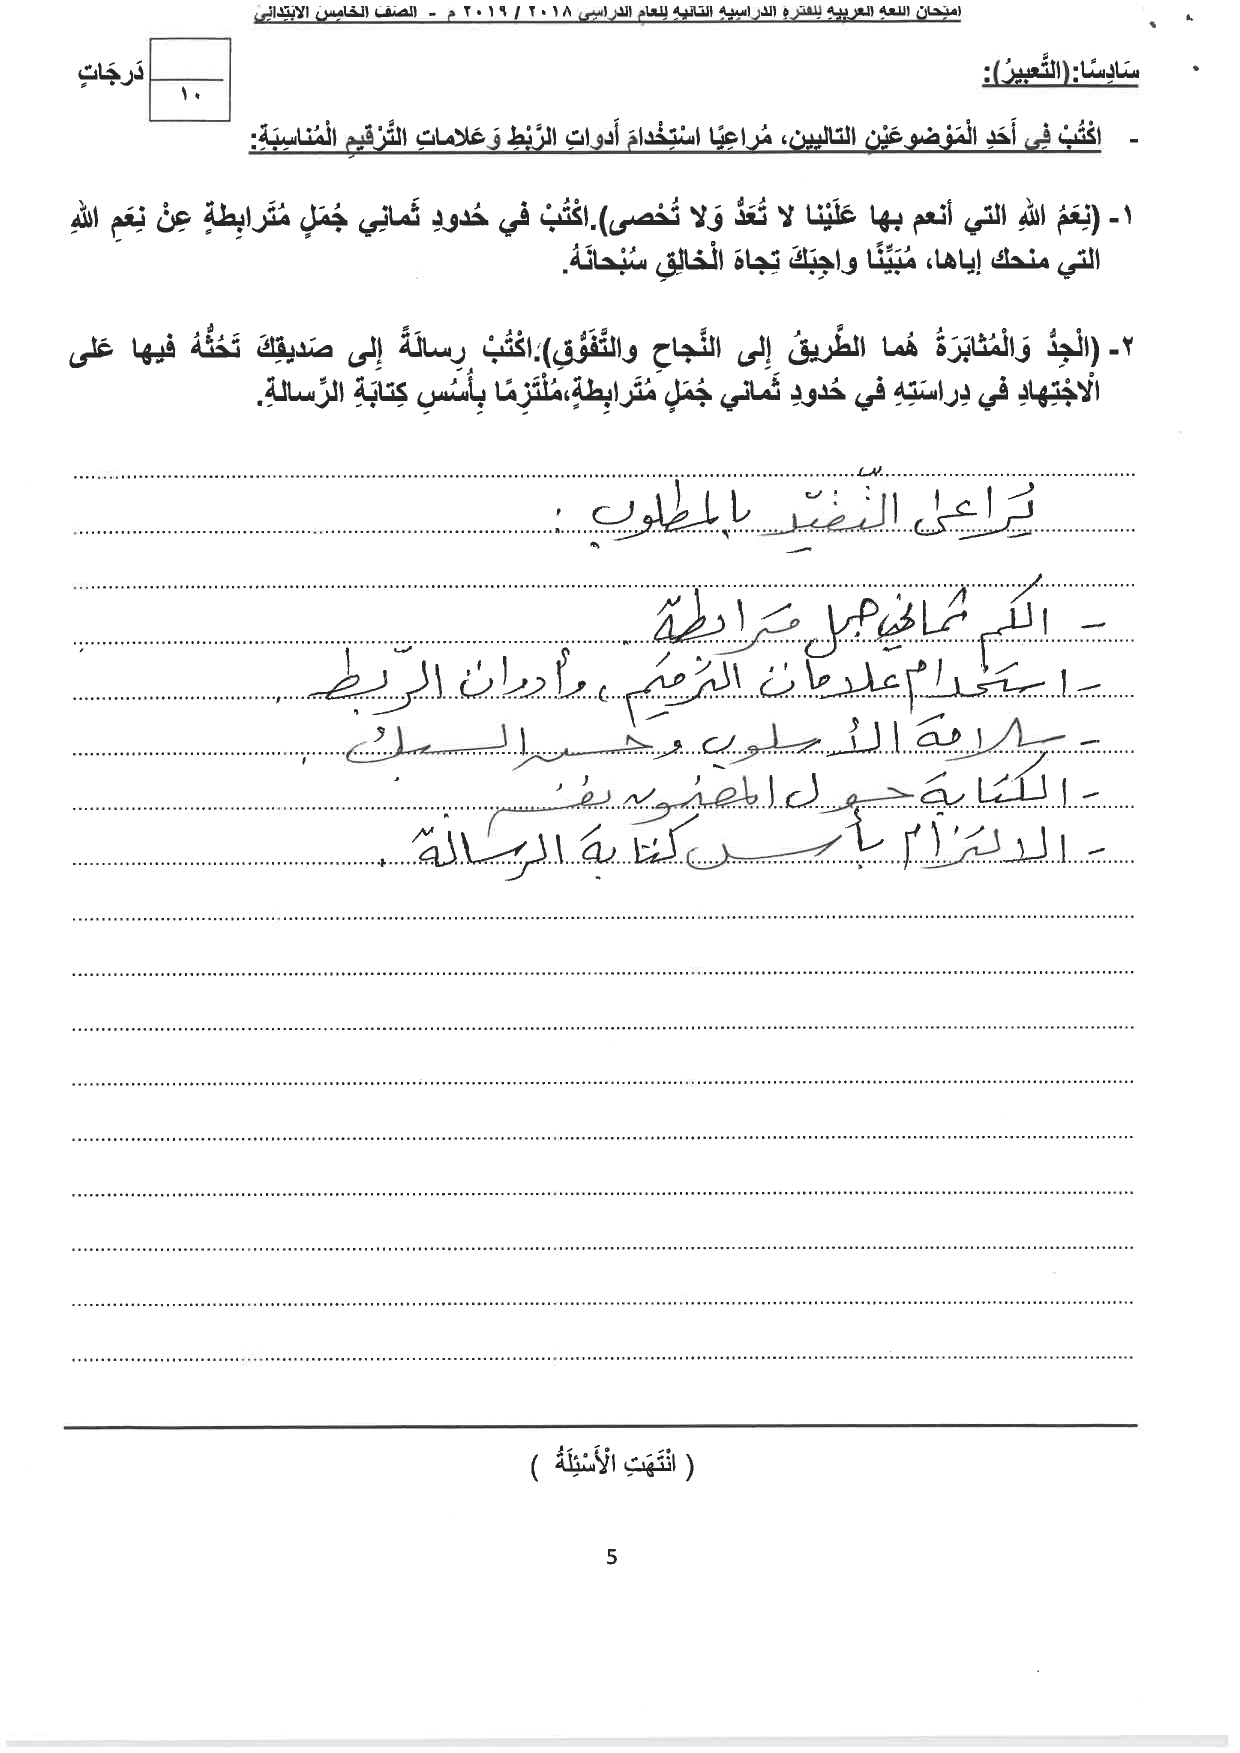 امتحان اللغة العربية للفترة الدراسية الثانية للعام الدراسي ٢٠١٨ / ٢٠١٩ م - الصف الخامس الابتدائي
سَادِسًا:(التَّعبيرُ):
دَرجَاتٍ
١٠
- اكْتُبْ فِي أَحَدِ الْمَوْضوعَيْنِ التاليين، مُراعِيًا اسْتِخْدامَ أدواتِ الرَّبْطِ وَعَلاماتِ التَّرْقيمِ الْمُناسِبَةِ:
١- (نِعَمُ اللهِ التي أنعم بها عَلَيْنا لا تُعَدُّ وَلا تُحْصى).اكْتُبْ في حُدودِ ثَماني جُمَلٍ مُتَرابِطةٍ عِنْ نِعَمِ اللهِ
التي منحك إياها، مُبَيِّنًا واجِبَكَ تِجاهَ الْخالِقِ سُبْحانَهُ.
٢- (الْجِدُّ وَالْمُثابَرَةُ هُما الطَّريقُ إلى النَّجاحِ والتَّفَوُّقِ).اكْتُبْ رِسالَةً إلى صَديقِكَ تَحُثُّهُ فيها عَلى
الْاجْتِهادِ في دِراسَتِهِ في حُدودِ ثَماني جُمَلٍ مُتَرابِطةٍ،مُلْتَزِمًا بِأُسُسِ كِتابَةِ الرِّسالةِ.
يُراعى التّقيّد بالمطلوب :
- الكم ثماني جمل مترابطة .
- استخدام علامات الترقيم ، وأدوات الرّبط .
- سلامة الأسلوب وحسن السبك .
- الكتابة حول المضمون نفسه
- الالتزام بأسس كتابة الرسالة .
( انْتَهَتِ الْأَسْئِلَةُ )
5